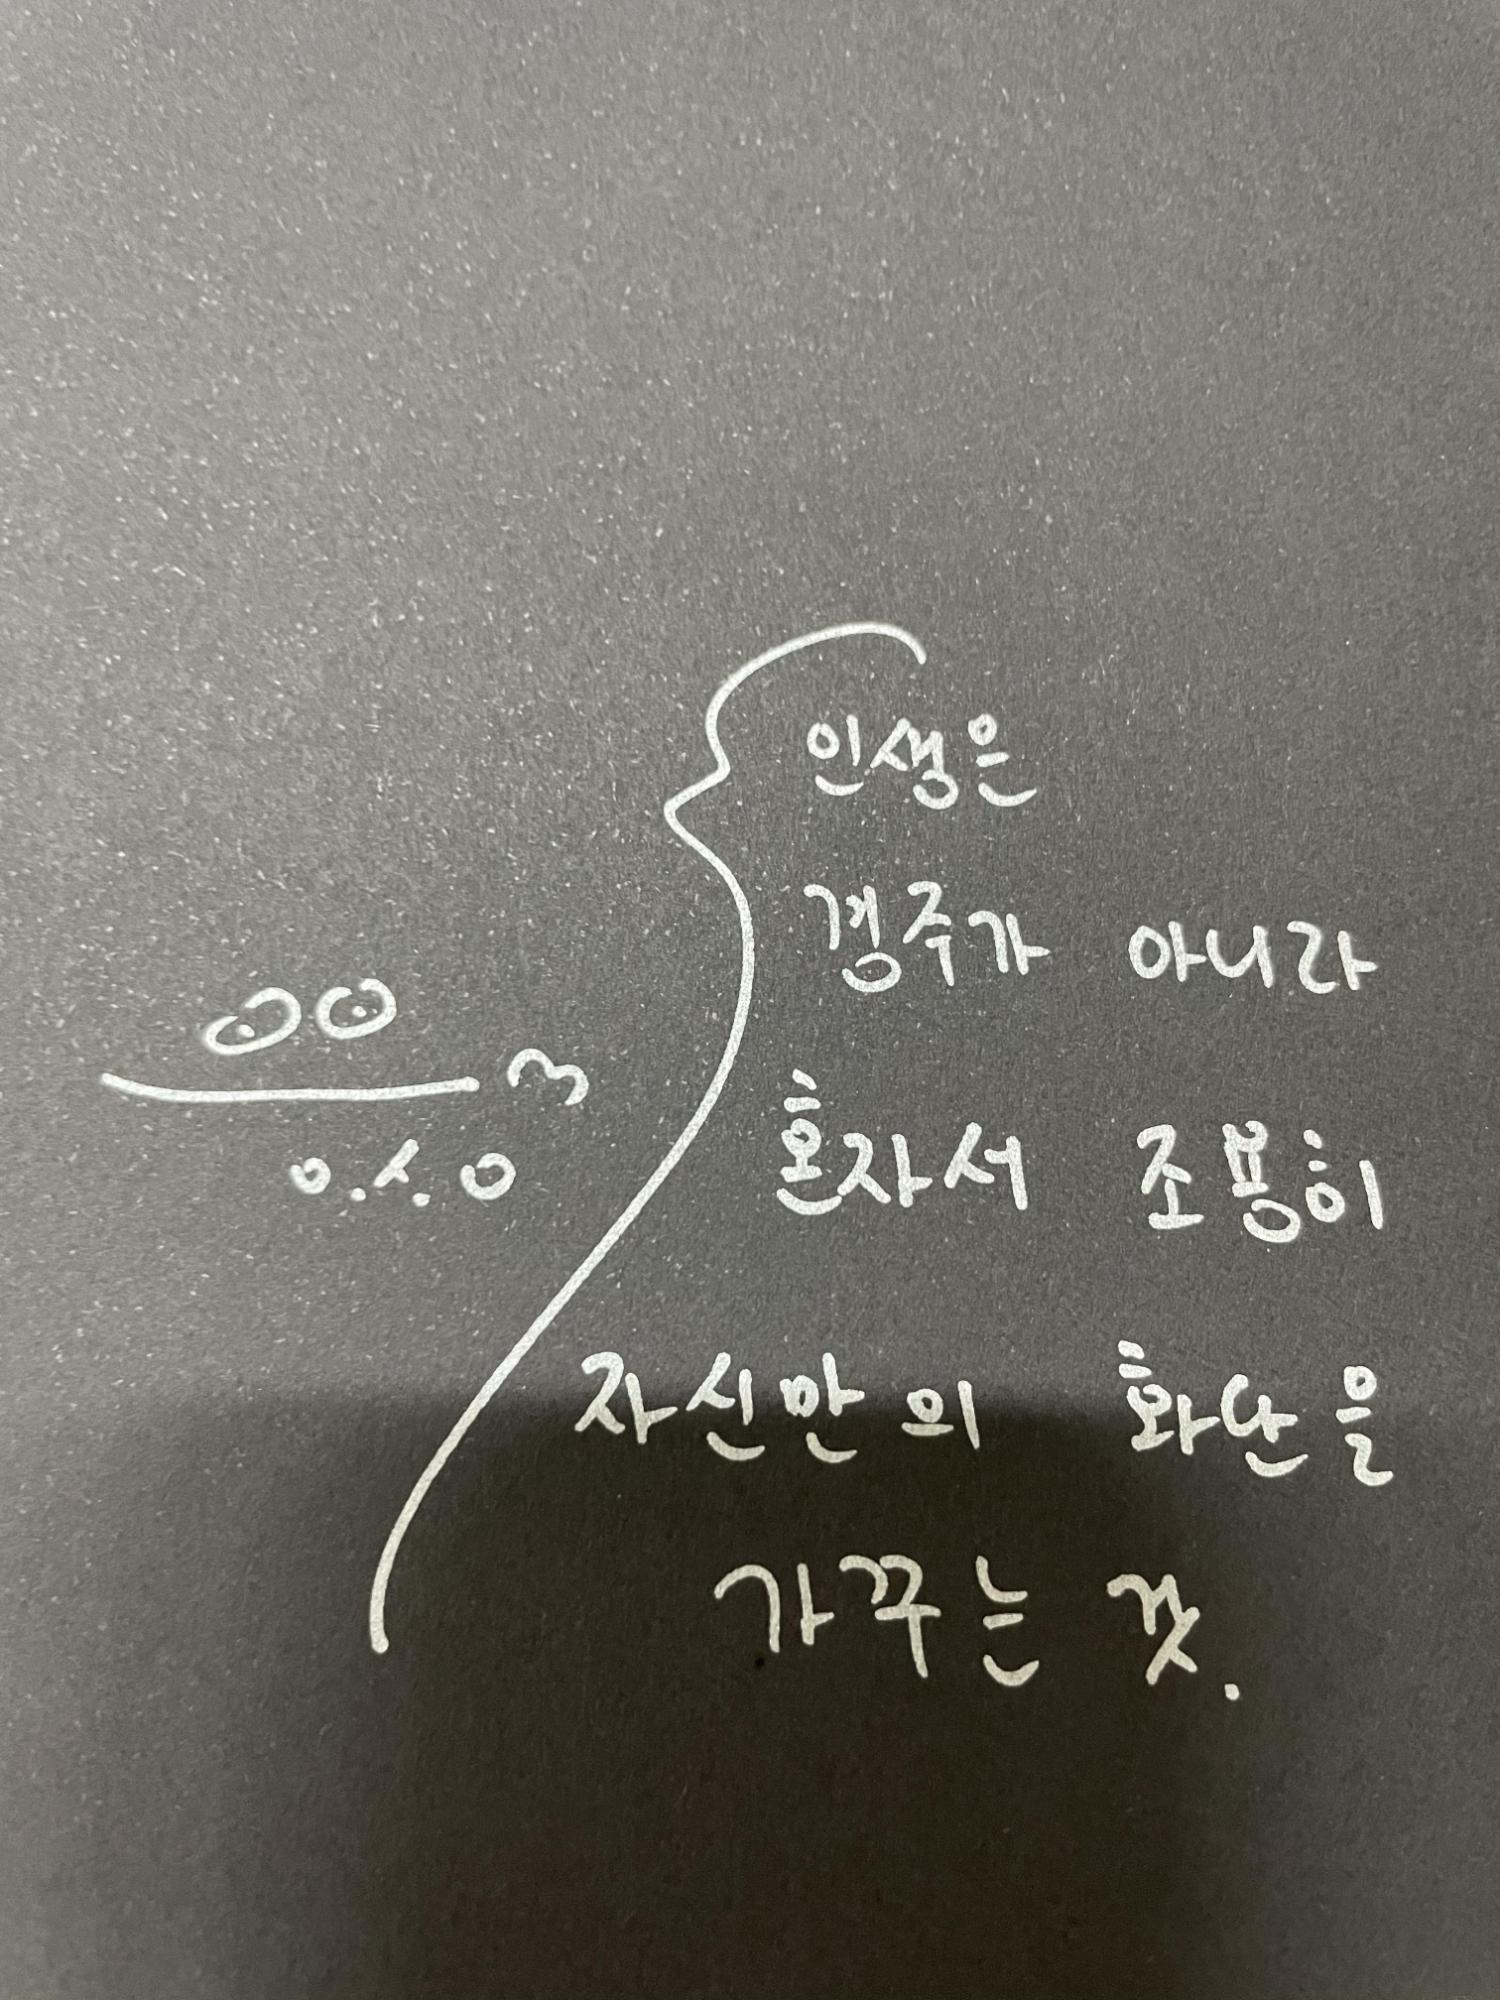 인생은
경주가 아니라
혼자서 조용히
자신만의 화단을
가꾸는 것.